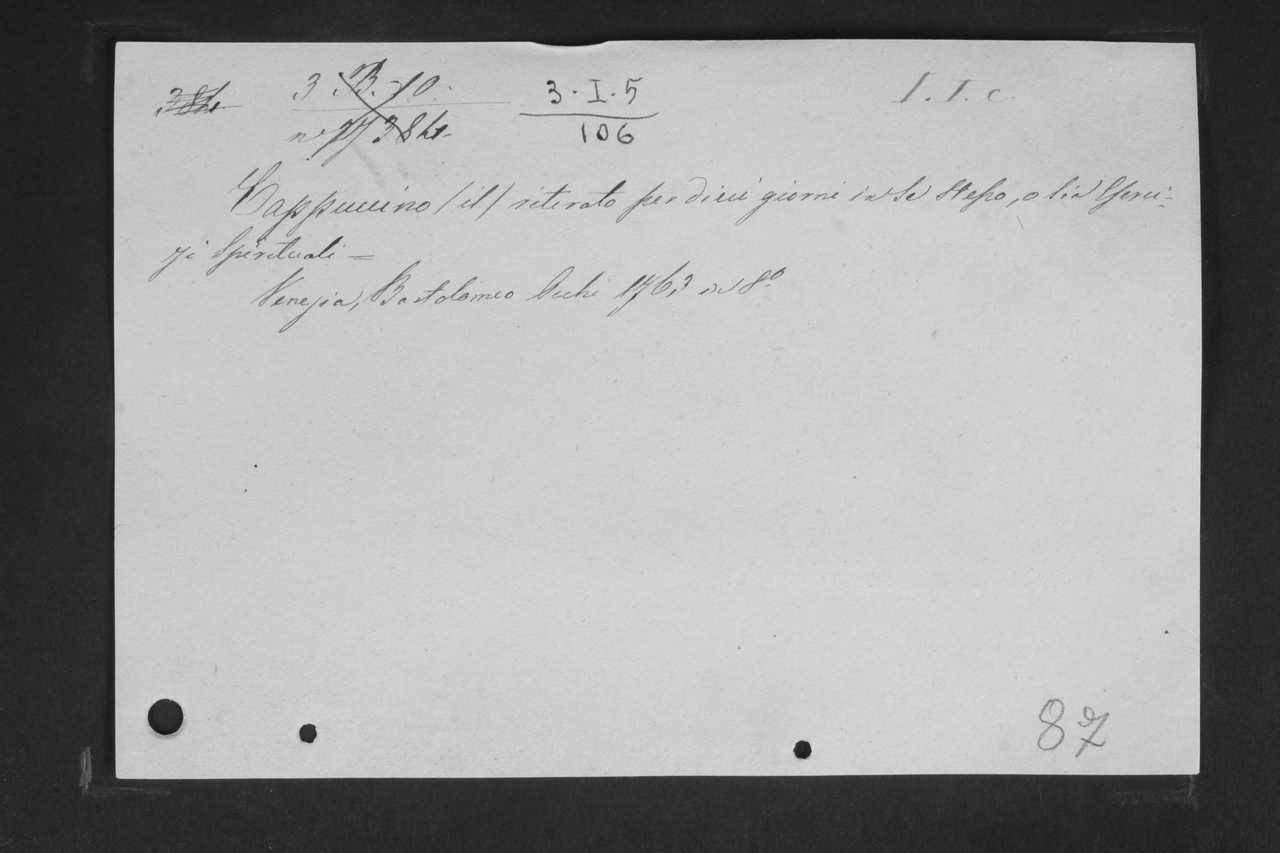 3 B. 10. 3 · I · 5 I. I. c
106
Cappuccino (il) ritirato per dieci giorni in se stesso, o sia Eserci-
zi Spirituali =
Venezia, Bartolomeo Occhi 1763 in 8º
87